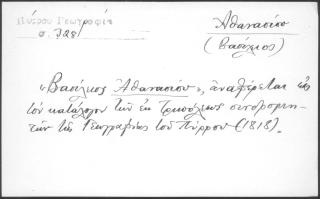 Πύρρου Γεωγραφία
σ. 728
Ἀθανασίου
(Βασίλειος)
"Βασίλειος Ἀθανασίου", ἀναφέρεται εἰς
τὸν κατάλογον τῶν ἐκ Τριπόλεως συνδρομη-
τῶν τῆς Γεωγραφίας τοῦ Πύρρου (1818).